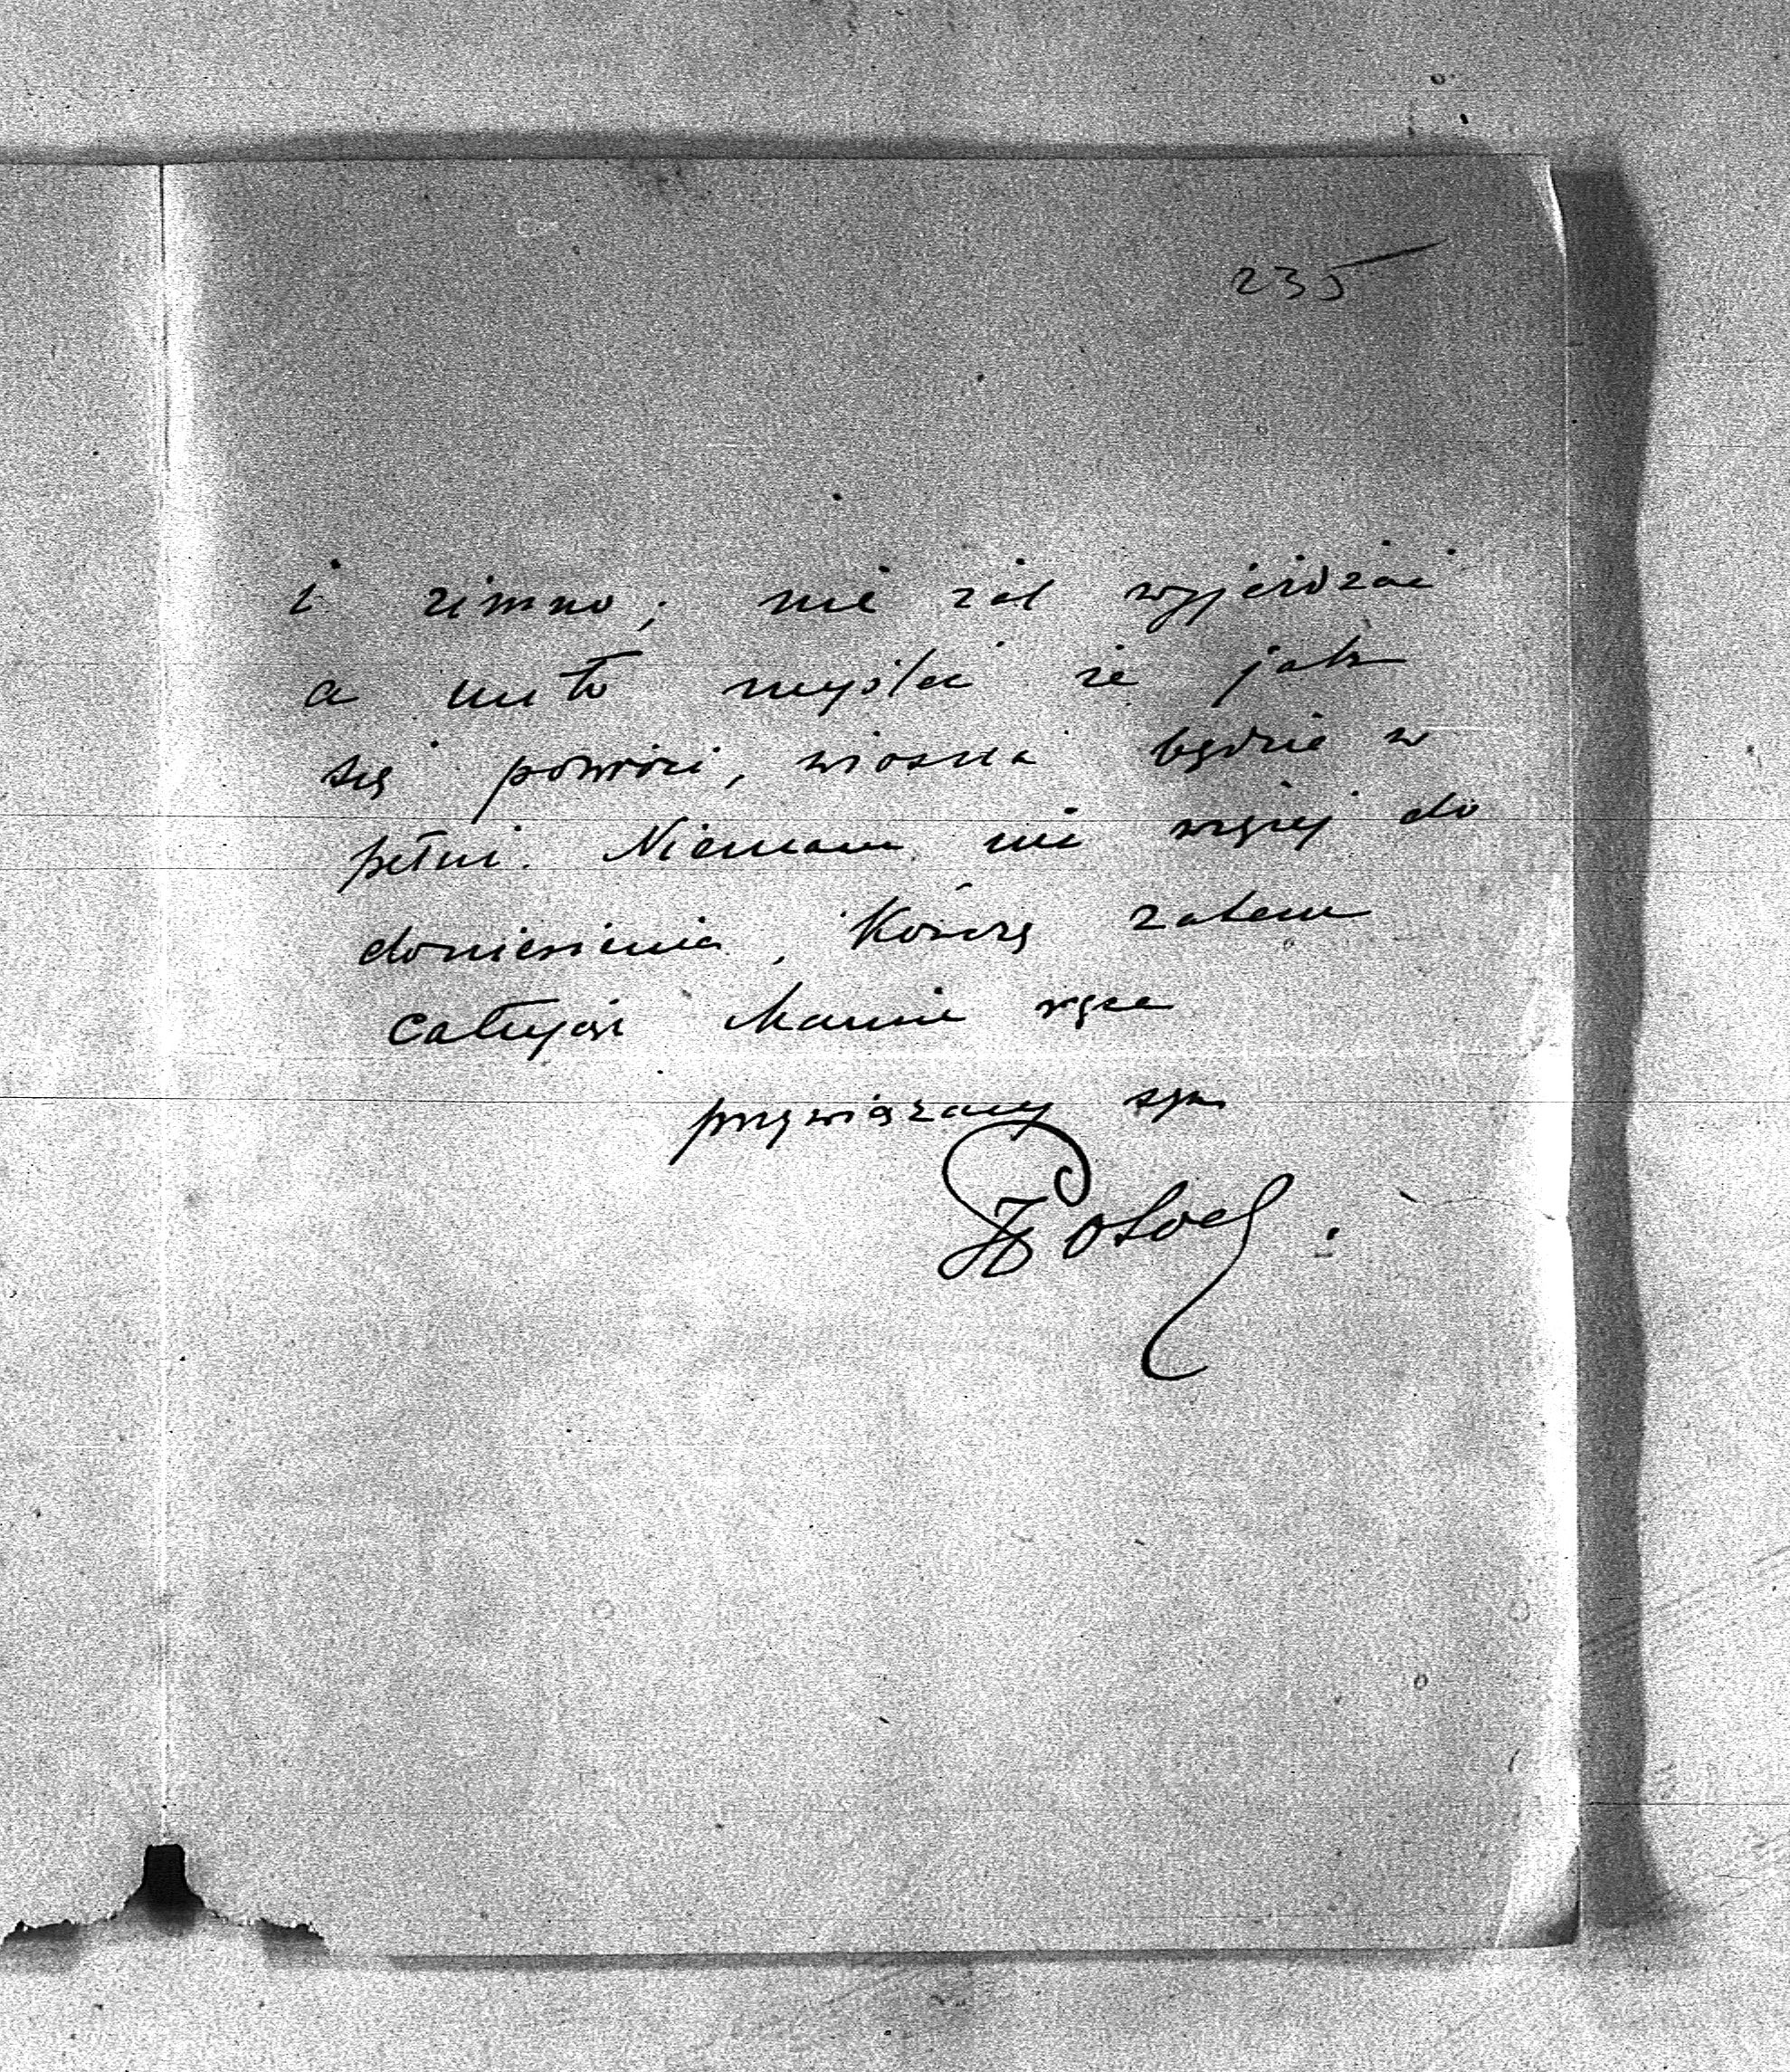 235
i zimno; nie żal wyjeżdżać
a miło myśleć że jak
się powróci, wiosna będzie w
pełni. Niemam nic więcej do
doniesienia, Kończę zatem
całując Mamie ręce
przywiązany syn